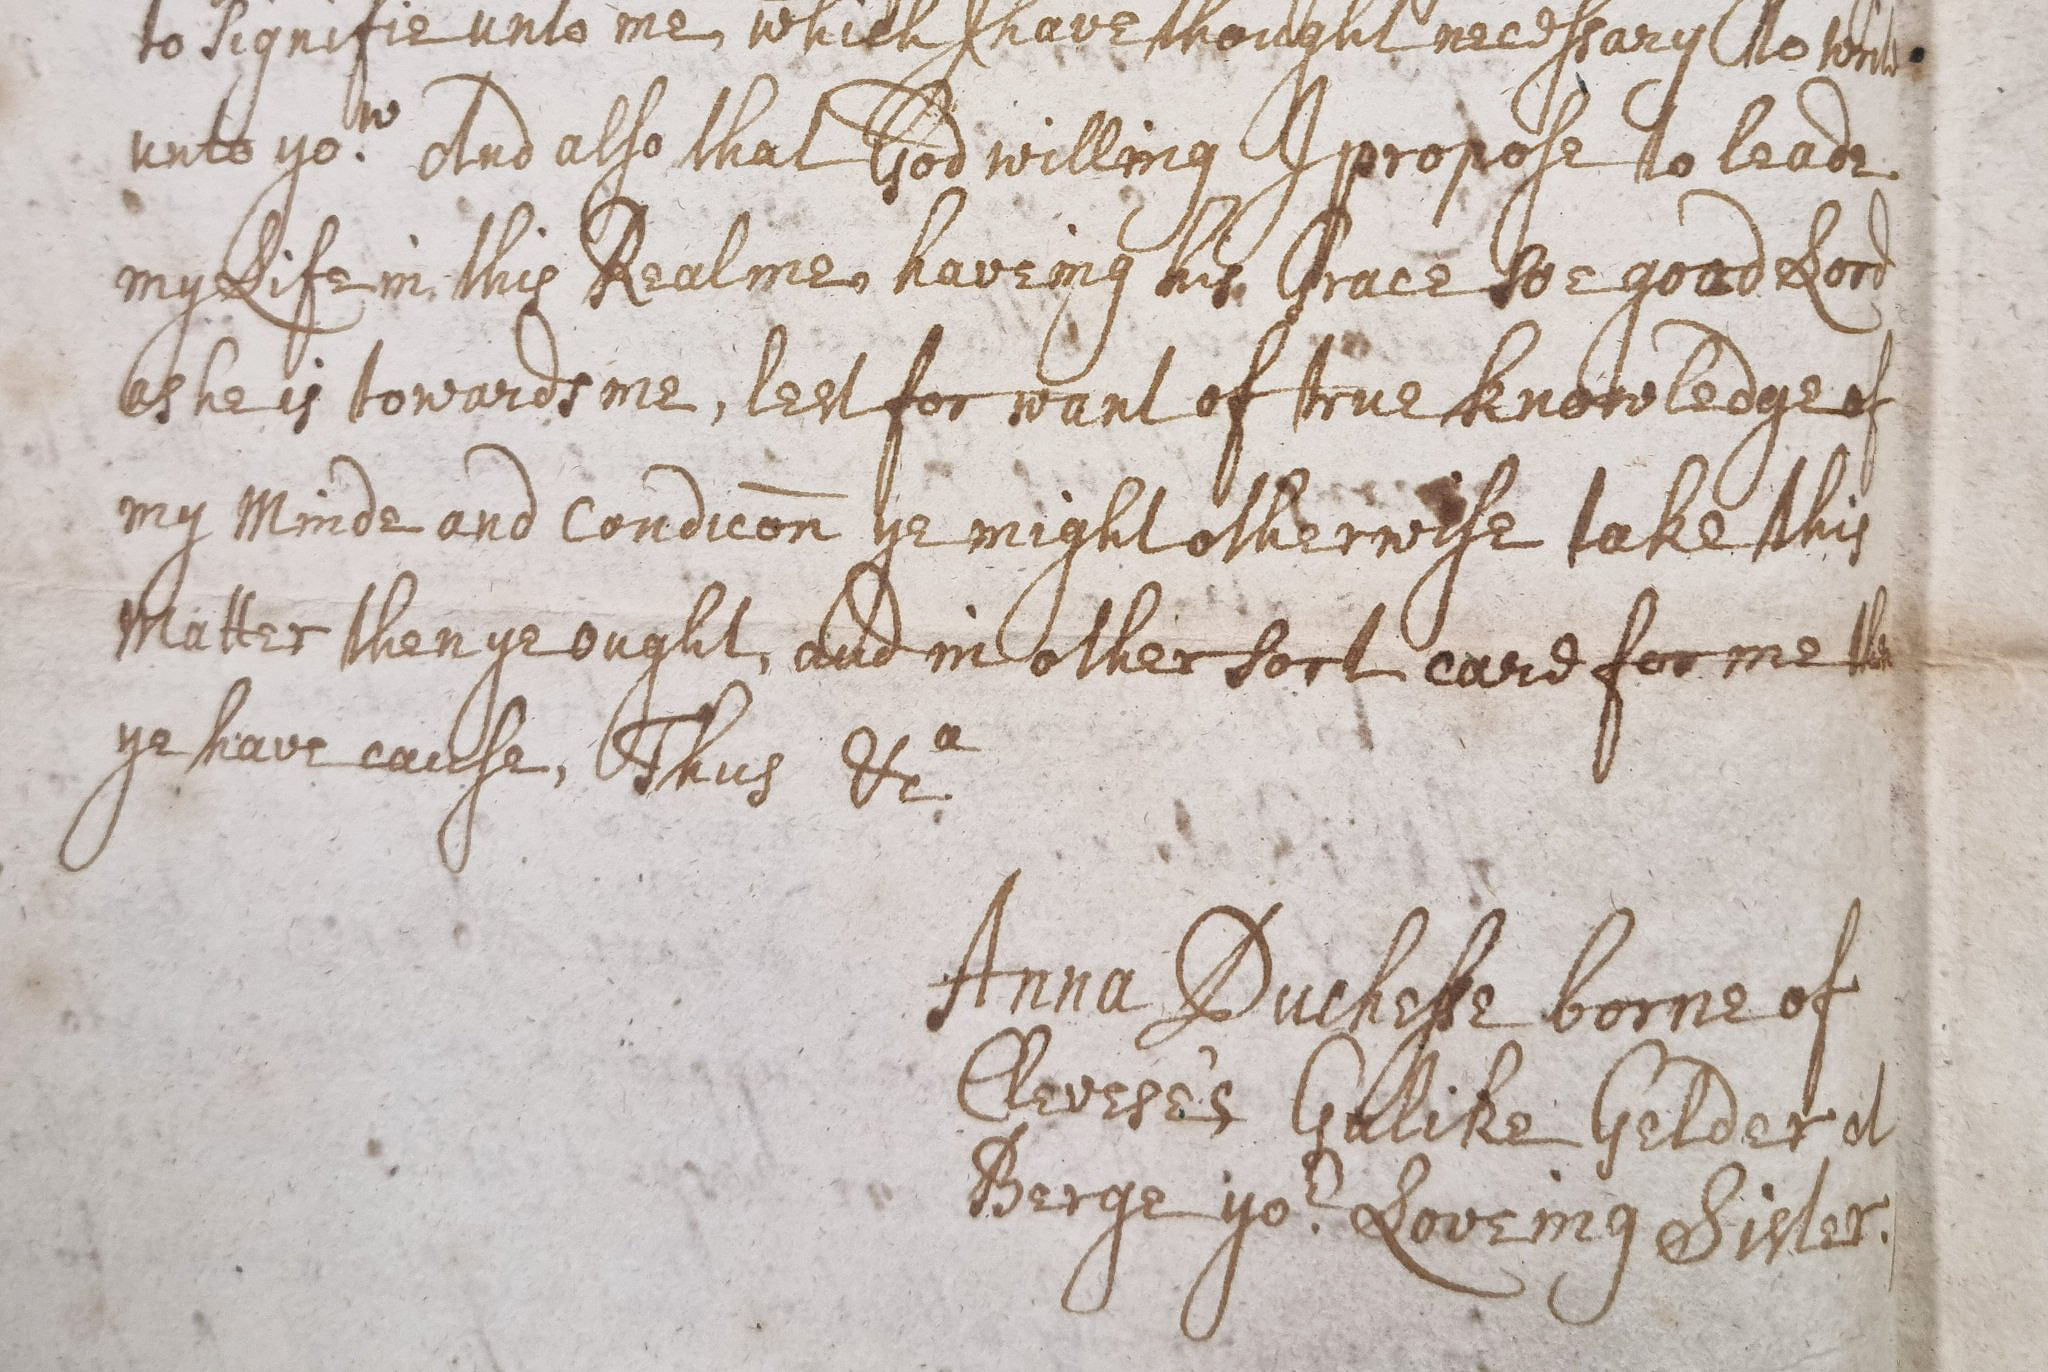 to signifie unto me, which I have thought necessary to write
unto yo.w And also that God willing I propose to leade
my Life in this Realme, haveing his Grace soe good Lord
as he is towards me, lest for want of true knowledge of
my Minde and Condicōn ye might otherwise take this
Matter then ye ought, and in other sort care for me then
ye have cause, Thus &c.a
Anna Duchesse borne of
Cleves'es Gulike Gelder et
Berge yo.r Loveing Sister.